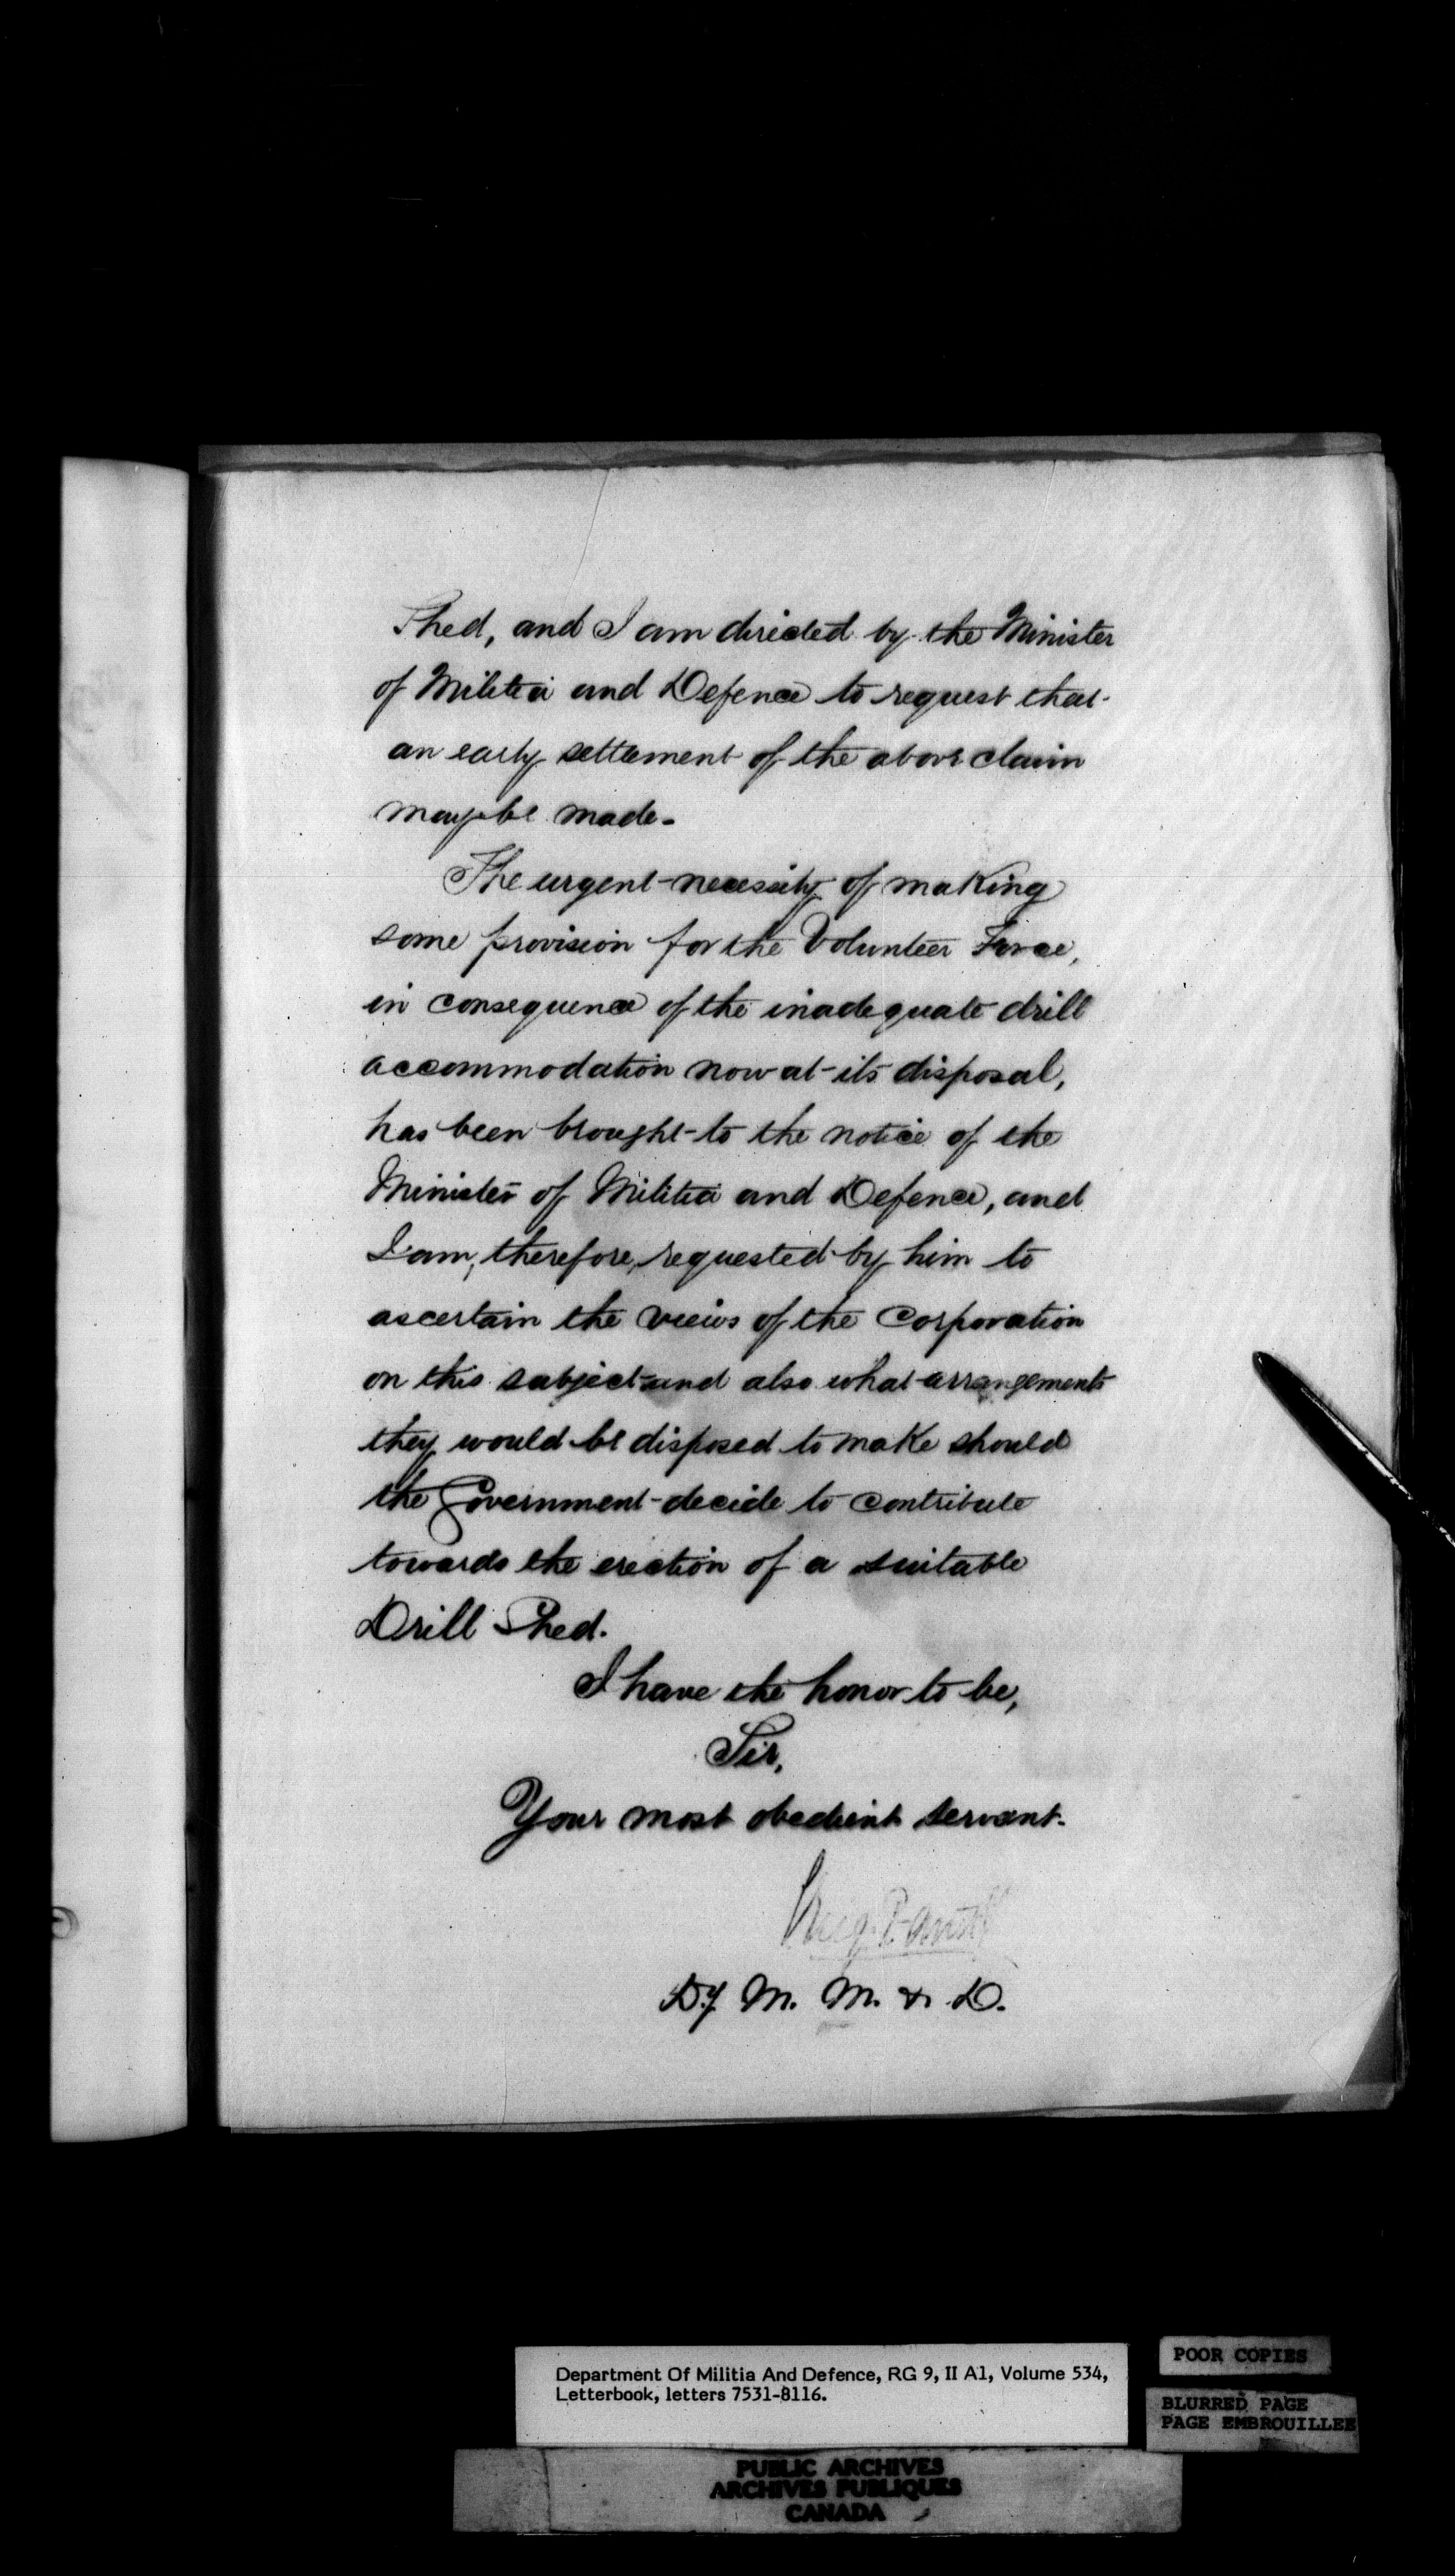 Shed, and I am directed by the Minister
of Militia and Defence to request that
an early settlement of the above claim
may be made.
The urgent necessity of making
some provision for the Volunteer Force,
in consequence of the inadequate drill
accommodation now at its disposal,
has been brought to the notice of the
Minister of Militia and Defence, and
I am, therefore, requested by him to
ascertain the views of the Corporation
on this subject and also what arrangements
they would be disposed to make should
the Government decide to contribute
towards the erection of a suitable
Drill Shed.
I have the honor to be,
Sir,
Your most obedient servant.
Dy. M. M. & D.
Department Of Militia And Defence, RG 9, II A1, Volume 534,
Letterbook, letters 7531-8116.
POOR COPIES
BLURRED PAGE
PAGE EMBROUILLEE
PUBLIC ARCHIVES
ARCHIVES PUBLIQUES
CANADA